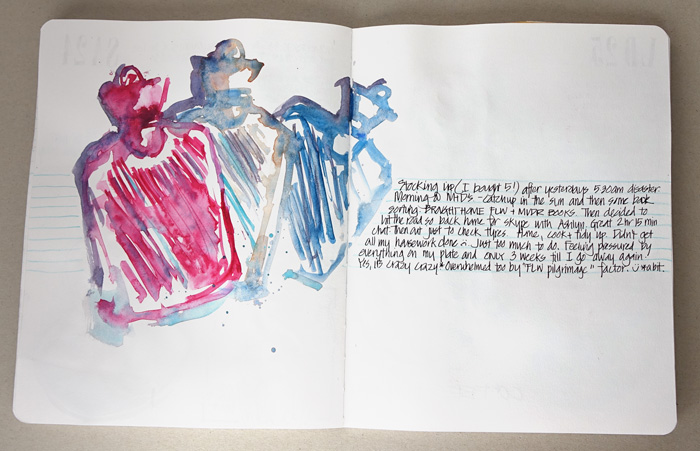 Stocking up (I bought 5!) after yesterdays 530am disaster.
Morning @ MHDS - catchup in the sun and then some book
sorting. BROUGHT HOME FLW + MVDR BOOKS. Then decided to
hit the road so back home for skype with Ashlyn. Great 2 hr 15 min
chat then out just to check tyres. Home, cook + tidy up. Didn't get
all my housework done. Just too much to do. Feeling pressured by
everything on my plate and ONLY 3 weeks till I go away again!
Yes, it's crazy crazy. Overwhelmed too by "FLW pilgrimage" factor.